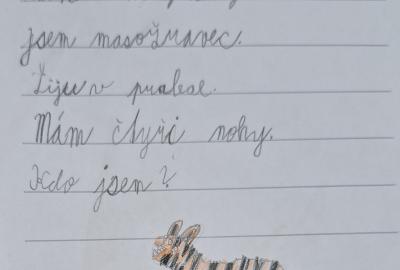 jsem masožravec.
Žiju v pralese.
Mám čtyři nohy.
Kdo jsem?